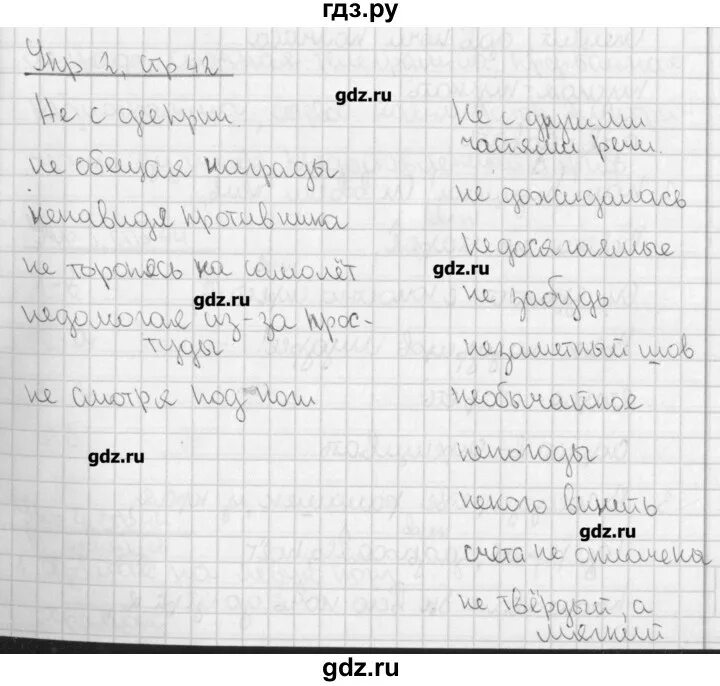 гдз.ру
Упр 2, стр 42
gdz.ru
Не с деепричт.
не обещая награды
ненавидя противника
не торопясь на самолёт
gdz.ru
недомогая из-за прос-
туды
не смотря под ноги
gdz.ru
Не с другими
частями речи.
не дожидалась
недосягаемые
gdz.ru
не забудь
незаметный шов
необычайное
непогоды
некого винить
gdz.ru
счета не оплачены
не твёрдый, а
мягкий
gdz.ru